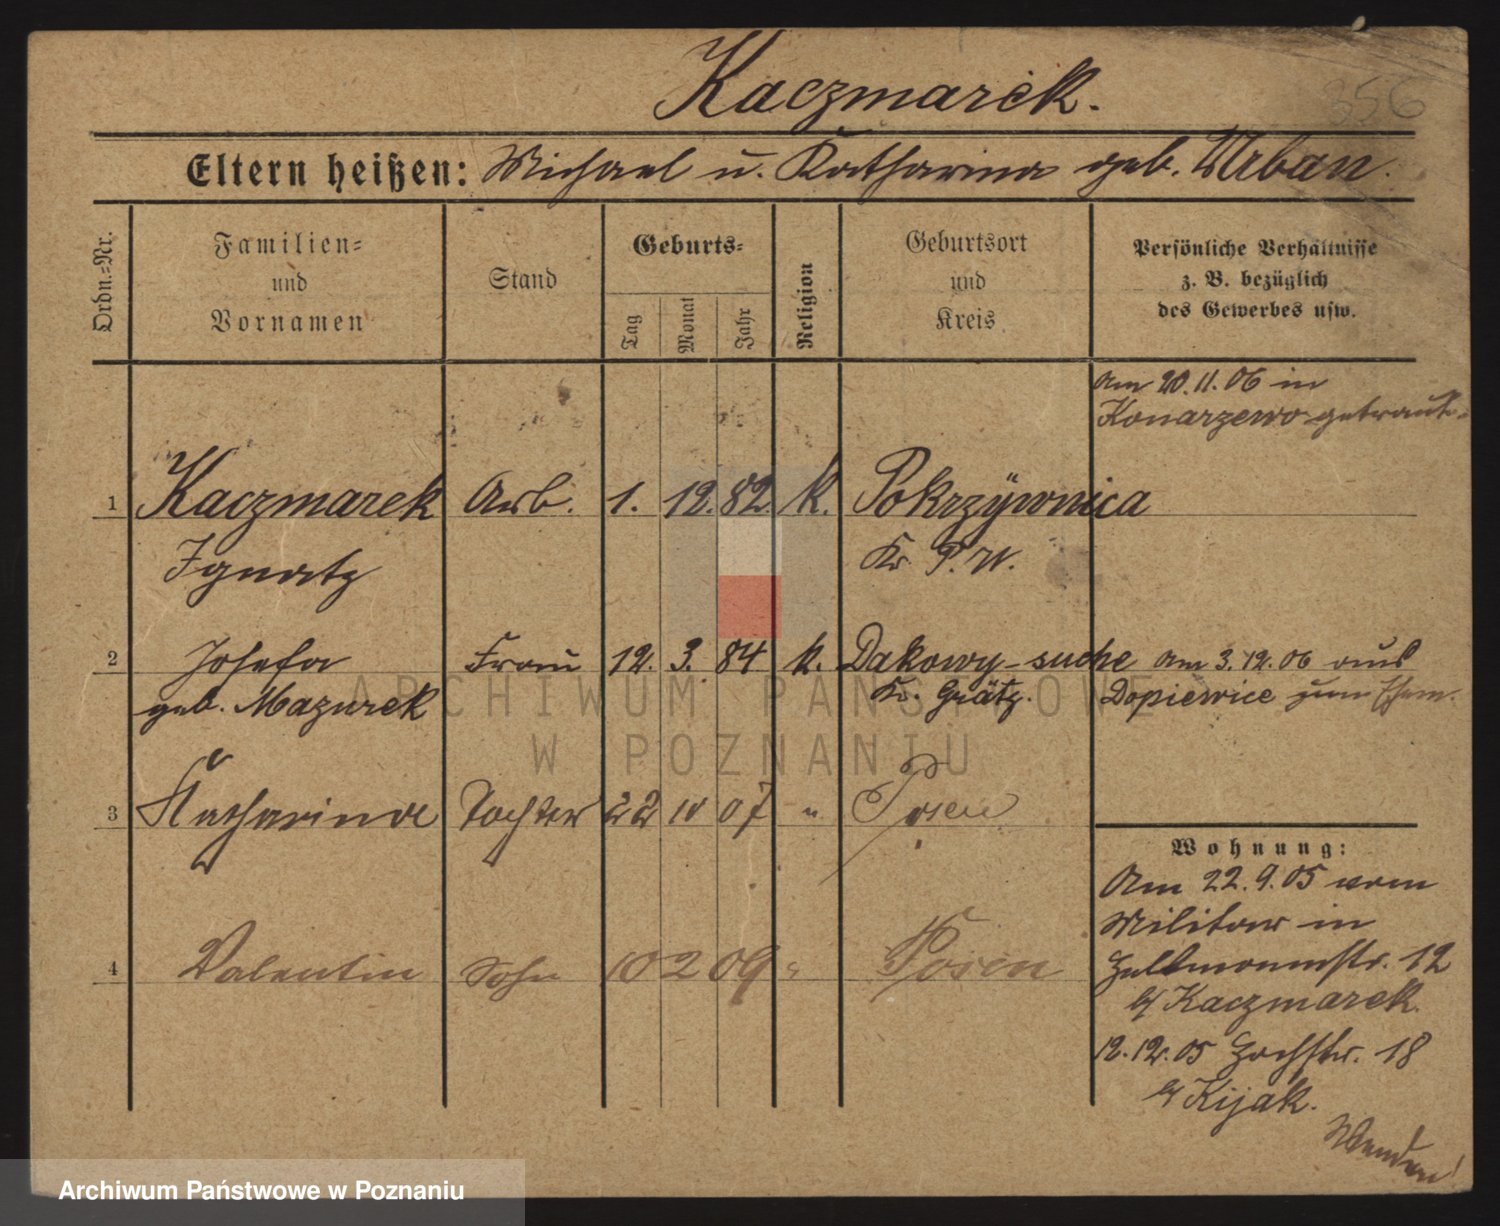 Kaczmarek.
356
Eltern heißen: Michael u. Katharina geb. Urban.
Ordn.-Nr.
Familien-
und
Vornamen
Stand
Geburts-
Tag
Monat
Jahr
Religion
Geburtsort
und
Kreis
Persönliche Verhältnisse
z. B. bezüglich
des Gewerbes usw.
Am 20.11.06 in
Konarzewo getraut.
1 Kaczmarek Arb. 1. 12. 82. k. Pokrzÿwnica
Ignatz Kr. P. W.
2 Josefa Frau 12. 3. 84 k. Dakowy-suche Am 3.12.06 aus
geb. Mazurek Kr. Grätz. Dopiewice zum Ehem.
ARCHIWUM PAŃSTWOWE
W POZNANIU
3 Katharina Tochter 22 10 07 " Posen
Wohnung:
Am 22.9.05 vom
Militär in
4 Valentin Sohn 10 2 09 " Posen
Hellmannstr. 12
b/ Kaczmarek.
12.12.05 Hochstr. 18
b/ Kijak.
Wenden!
Archiwum Państwowe w Poznaniu